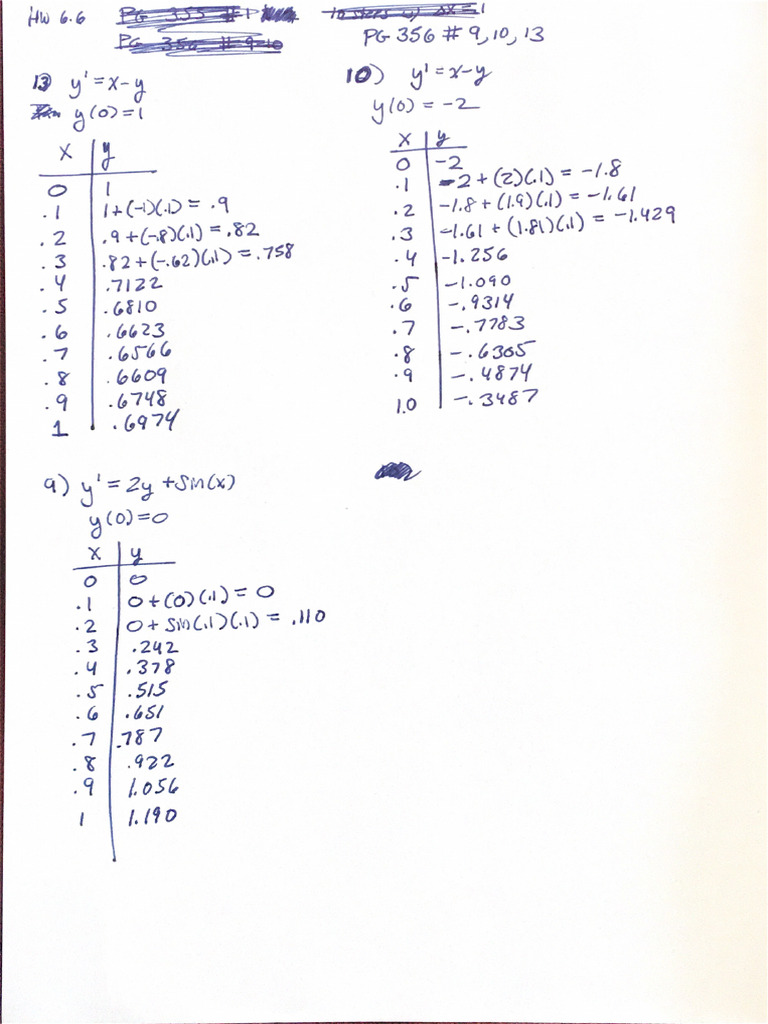 HW 6.6 PG 355 #1
PG 356 # 9-10
PG 356 # 9, 10, 13
13) y' = x-y
y(0) = 1
x | y
0 | 1
.1 | 1+(-1)(.1) = .9
.2 | .9+(-.8)(.1) = .82
.3 | .82+(-.62)(.1) = .758
.4 | .7122
.5 | .6810
.6 | .6623
.7 | .6566
.8 | .6609
.9 | .6748
1 | .6974
10) y' = x-y
y(0) = -2
x | y
0 | -2
.1 | -2+(2)(.1) = -1.8
.2 | -1.8+(1.9)(.1) = -1.61
.3 | -1.61+(1.81)(.1) = -1.429
.4 | -1.256
.5 | -1.090
.6 | -.9314
.7 | -.7783
.8 | -.6305
.9 | -.4874
1.0 | -.3487
9) y' = 2y + sin(x)
y(0) = 0
x | y
0 | 0
.1 | 0+(0)(.1) = 0
.2 | 0+ sin(.1)(.1) = .110
.3 | .242
.4 | .378
.5 | .515
.6 | .651
.7 | .787
.8 | .922
.9 | 1.056
1 | 1.190